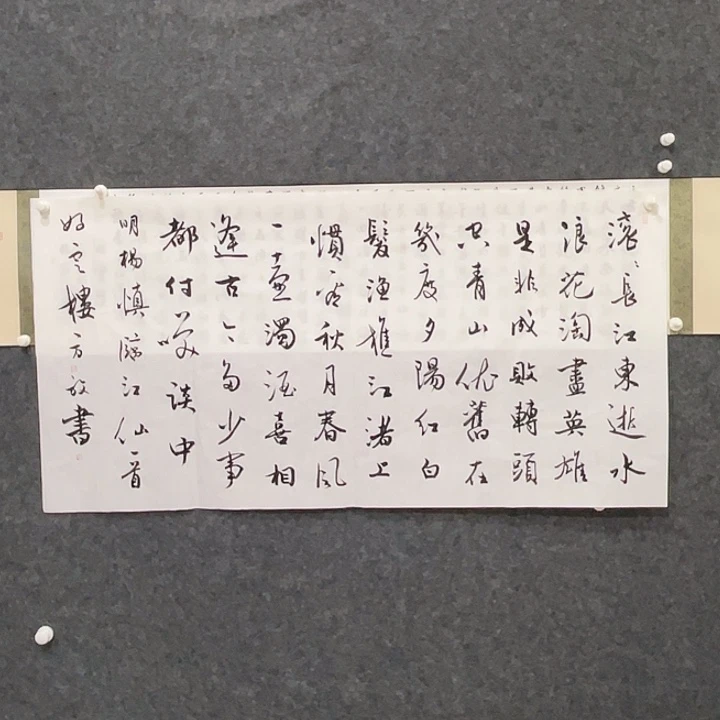 滚〻長江東逝水
浪花淘盡英雄
是非成敗轉頭
空青山依舊在
幾度夕陽紅白
髮漁樵江渚上
慣看秋月春風
一壺濁酒喜相
逢古今多少事
都付笑談中
明楊慎臨江仙一首
樓方書